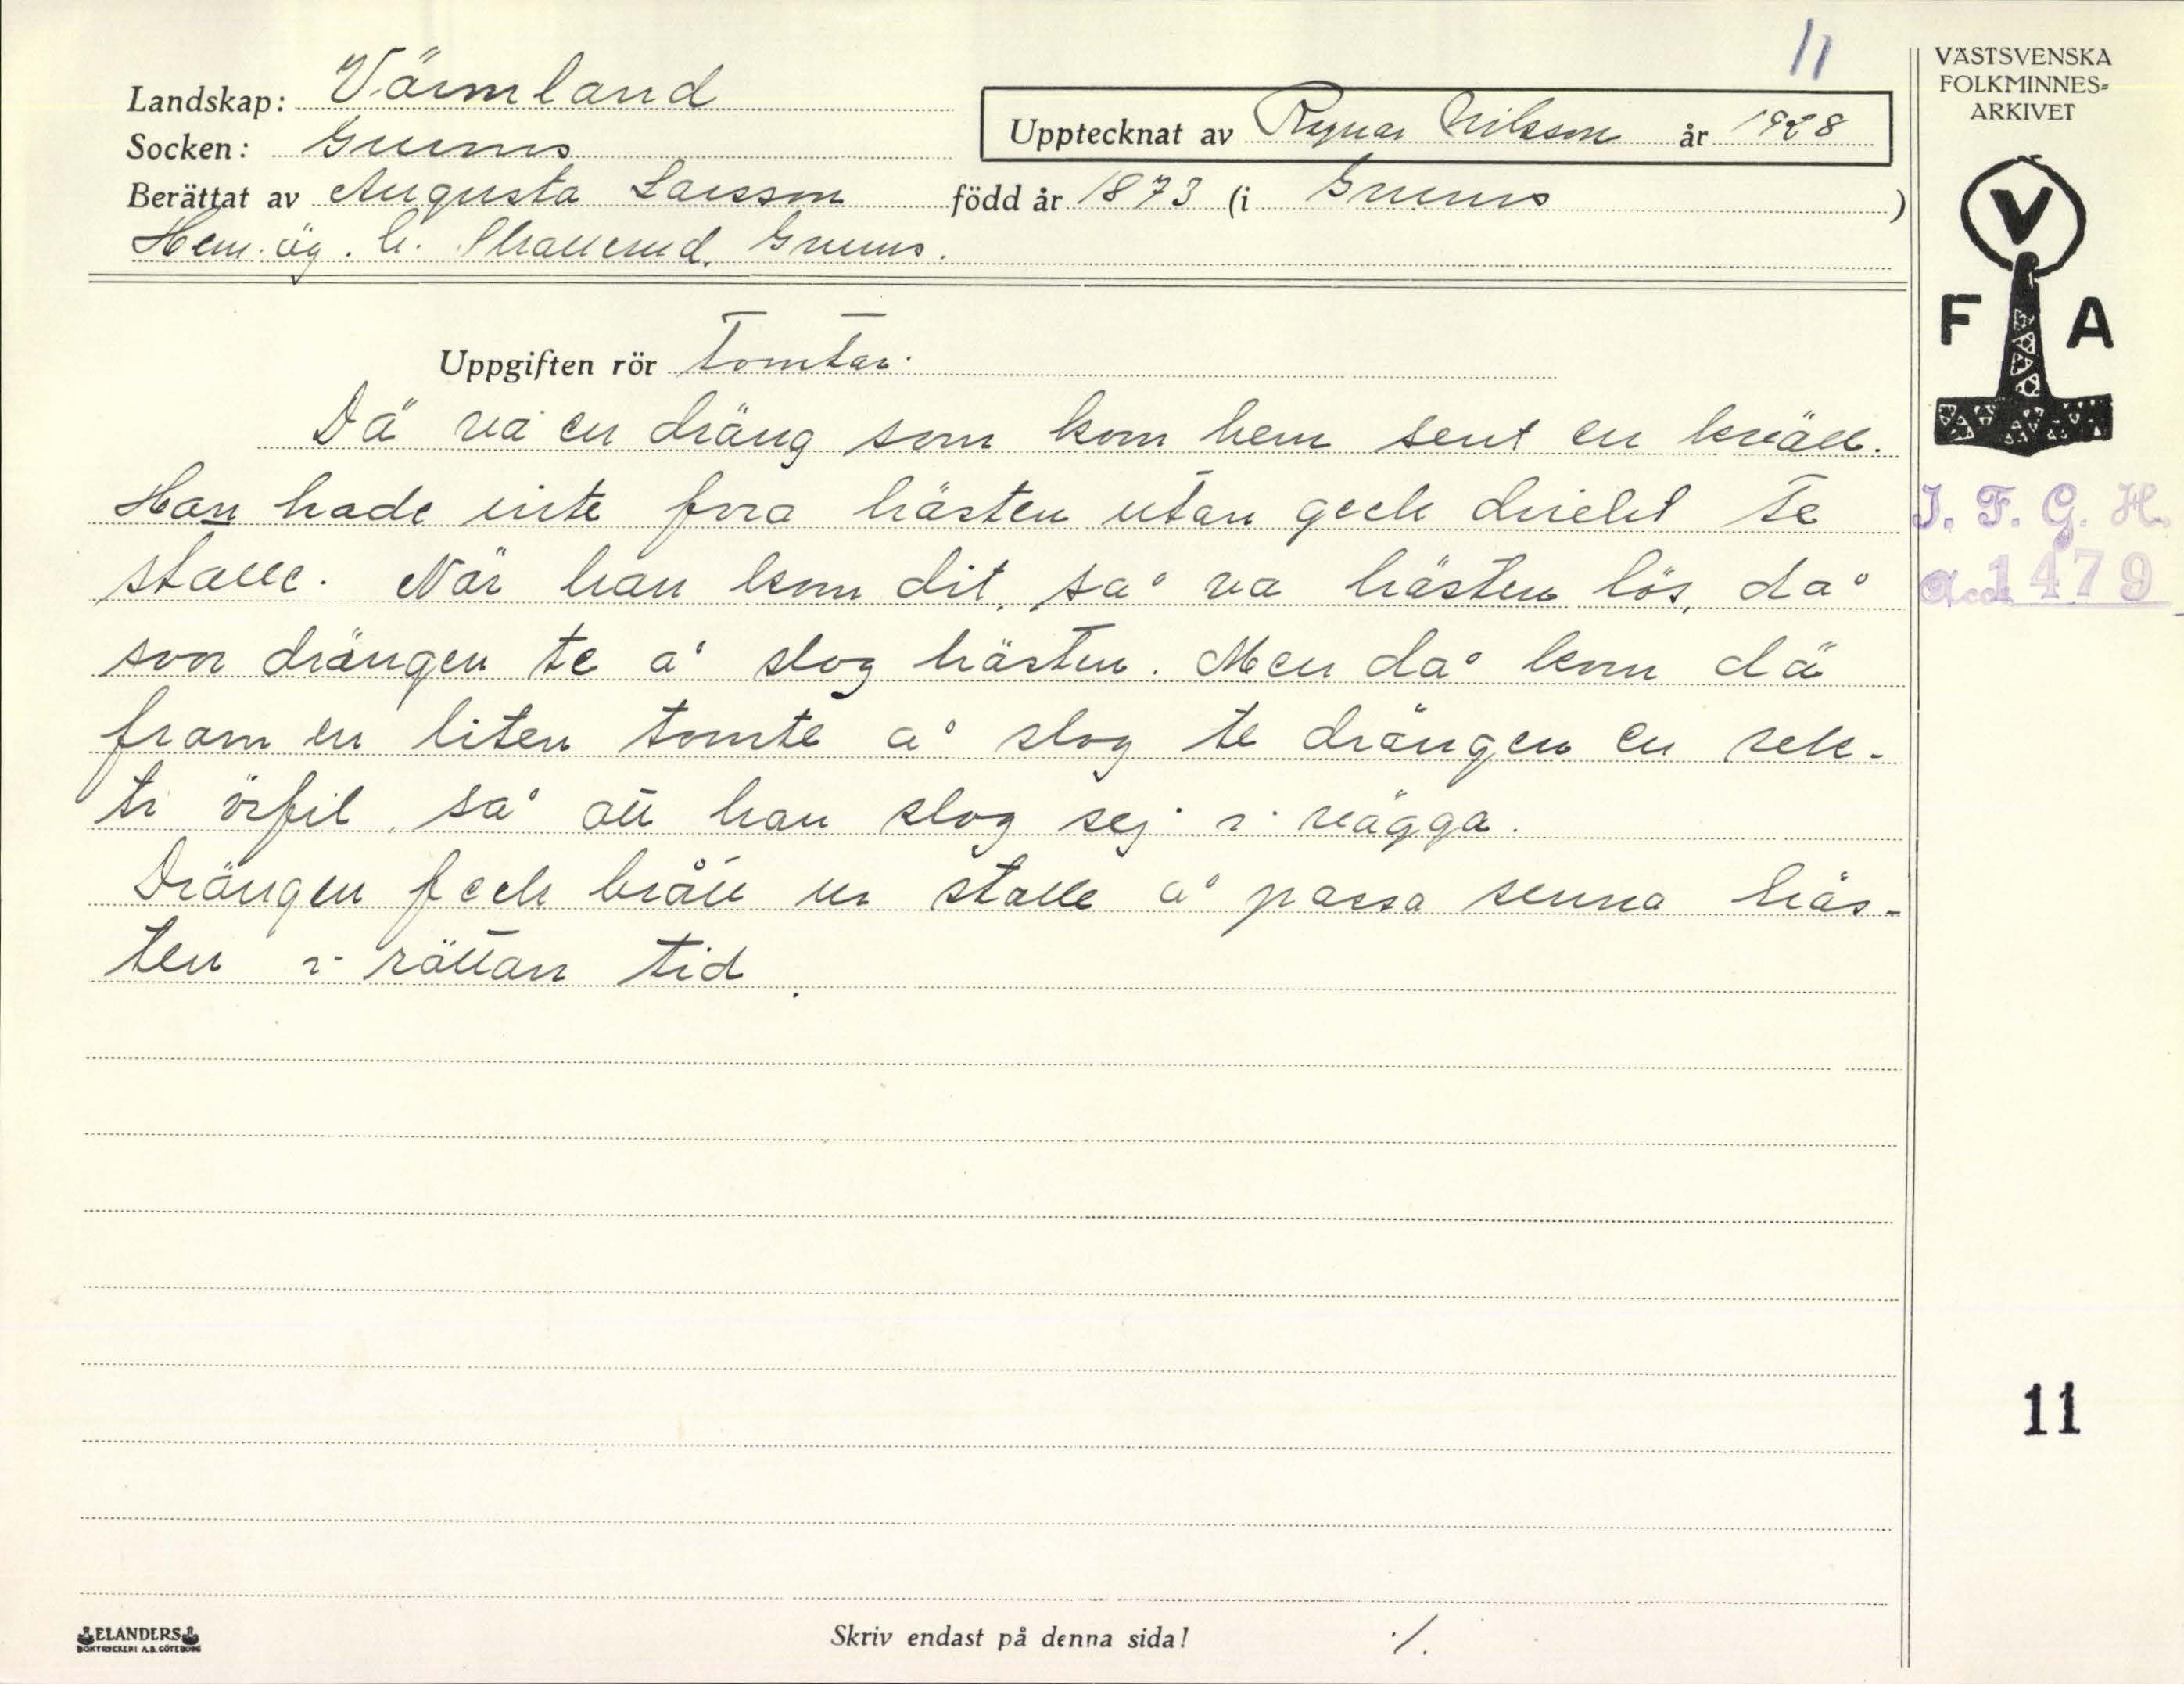 11
Landskap: Värmland
Socken: Grums
Upptecknat av Ragnar Nilsson år 1928
Berättat av Augusta Larsson född år 1873 (i Grums)
Hem. äg. h. Grums.
VÄSTSVENSKA
FOLKMINNES-
ARKIVET
V
F A
I. F. G. H.
Acc. 1479
Uppgiften rör Tomtar.
Dä va en dräng som kom hem sent en kväll.
Han hade inte fora hästen utan geck direkt te
stalle. När han kom dit, så va hästen lös, då
svor drängen te å slog hästen. Men då kom dä
fram en liten tomte å slog te drängen en rek-
ti örfil, så att han slog sej i vägga.
Drängen feck brått ur stalle å passa senna häs-
ten i rättan tid.
11
ELANDERS
BOKTRYCKERI A.B. GÖTEBORG
Skriv endast på denna sida!
./.